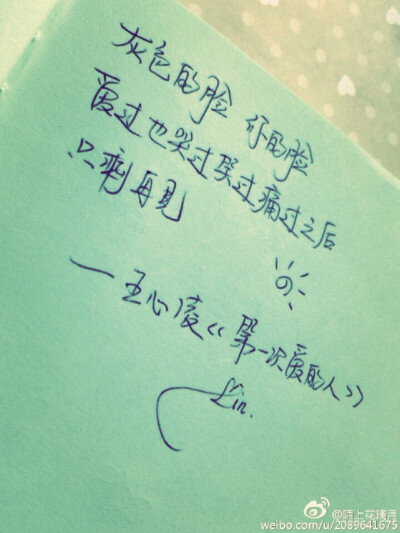 灰色的脸 你的脸
爱过也哭过笑过痛过之后
只剩再见
—王心凌《第一次爱的人》
Lin.
@陌上花瑾月
weibo.com/u/2089641675